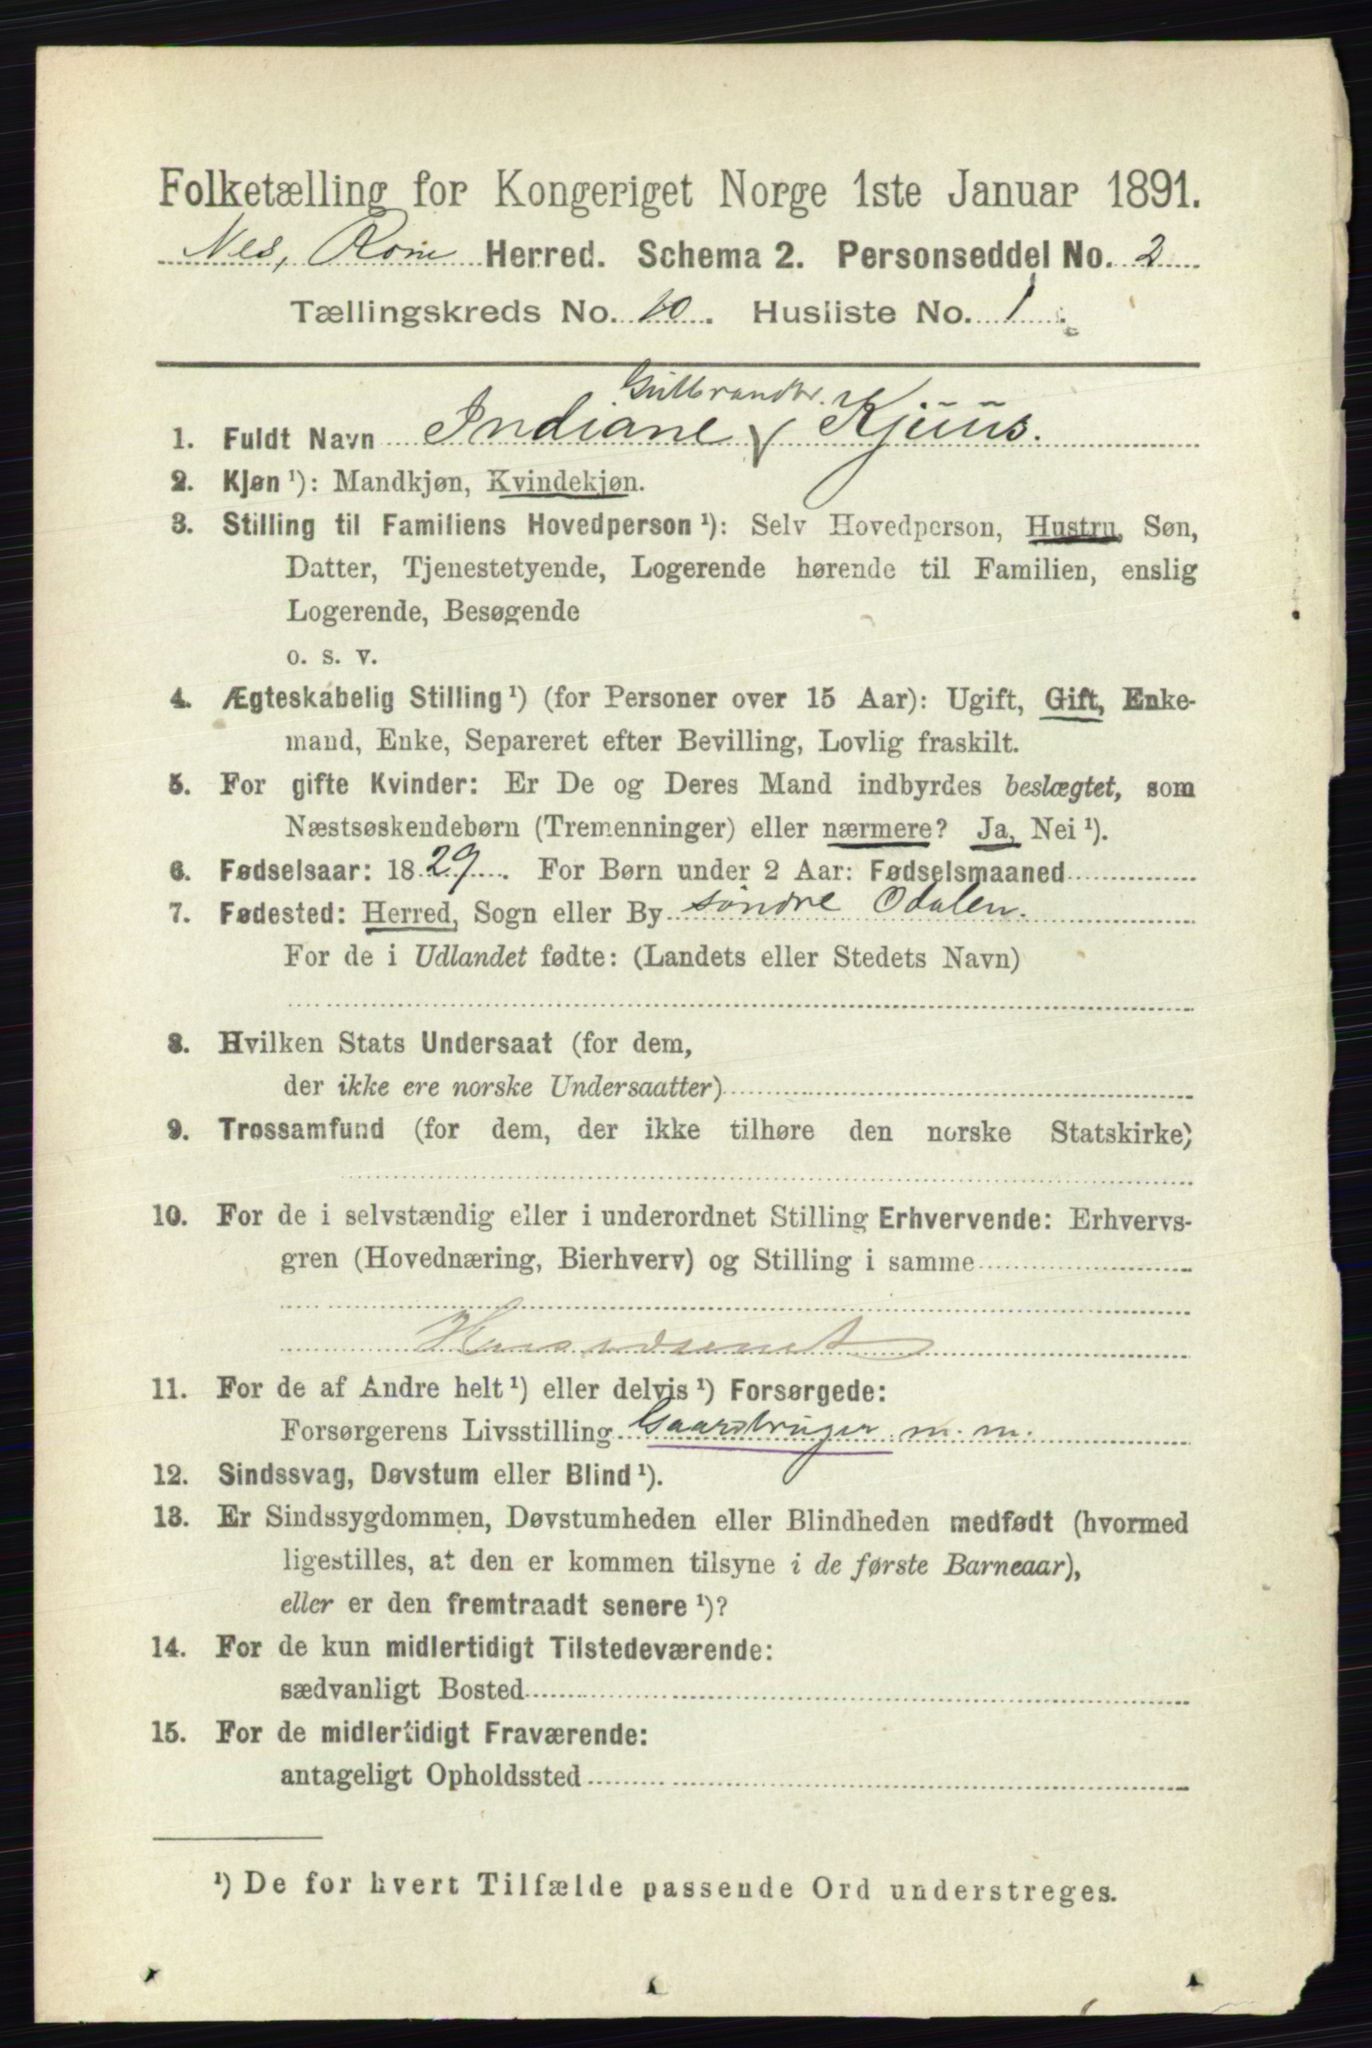 Folketælling for Kongeriget Norge 1ste Januar 1891.
Nes, Rom Herred. Schema 2. Personseddel No. 2
Tællingskreds No. 10. Husliste No. 1.
Gulbrandsr.
1. Fuldt Navn Indiane Kjuus.
2. Kjøn ¹): Mandkjøn, Kvindekjøn.
3. Stilling til Familiens Hovedperson ¹): Selv Hovedperson, Hustru, Søn,
Datter, Tjenestetyende, Logerende hørende til Familien, enslig
Logerende, Besøgende
o. s. v.
4. Ægteskabelig Stilling ¹) (for Personer over 15 Aar): Ugift, Gift, Enke-
mand, Enke, Separeret efter Bevilling, Lovlig fraskilt.
5. For gifte Kvinder: Er De og Deres Mand indbyrdes beslægtet, som
Næstsøskendebørn (Tremenninger) eller nærmere? Ja, Nei ¹).
6. Fødselsaar: 1829. For Børn under 2 Aar: Fødselsmaaned
7. Fødested: Herred, Sogn eller By søndre Odalen.
For de i Udlandet fødte: (Landets eller Stedets Navn)
8. Hvilken Stats Undersaat (for dem,
der ikke ere norske Undersaatter)
9. Trossamfund (for dem, der ikke tilhøre den norske Statskirke)
10. For de i selvstændig eller i underordnet Stilling Erhvervende: Erhvervs-
gren (Hovednæring, Bierhverv) og Stilling i samme
11. For de af Andre helt ¹) eller delvis ¹) Forsørgede:
Forsørgerens Livsstilling Gaardbruger m. m.
12. Sindssvag, Døvstum eller Blind ¹).
13. Er Sindssygdommen, Døvstumheden eller Blindheden medfødt (hvormed
ligestilles, at den er kommen tilsyne i de første Barneaar),
eller er den fremtraadt senere ¹)?
14. For de kun midlertidigt Tilstedeværende:
sædvanligt Bosted
15. For de midlertidigt Fraværende:
antageligt Opholdssted
¹) De for hvert Tilfælde passende Ord understreges.